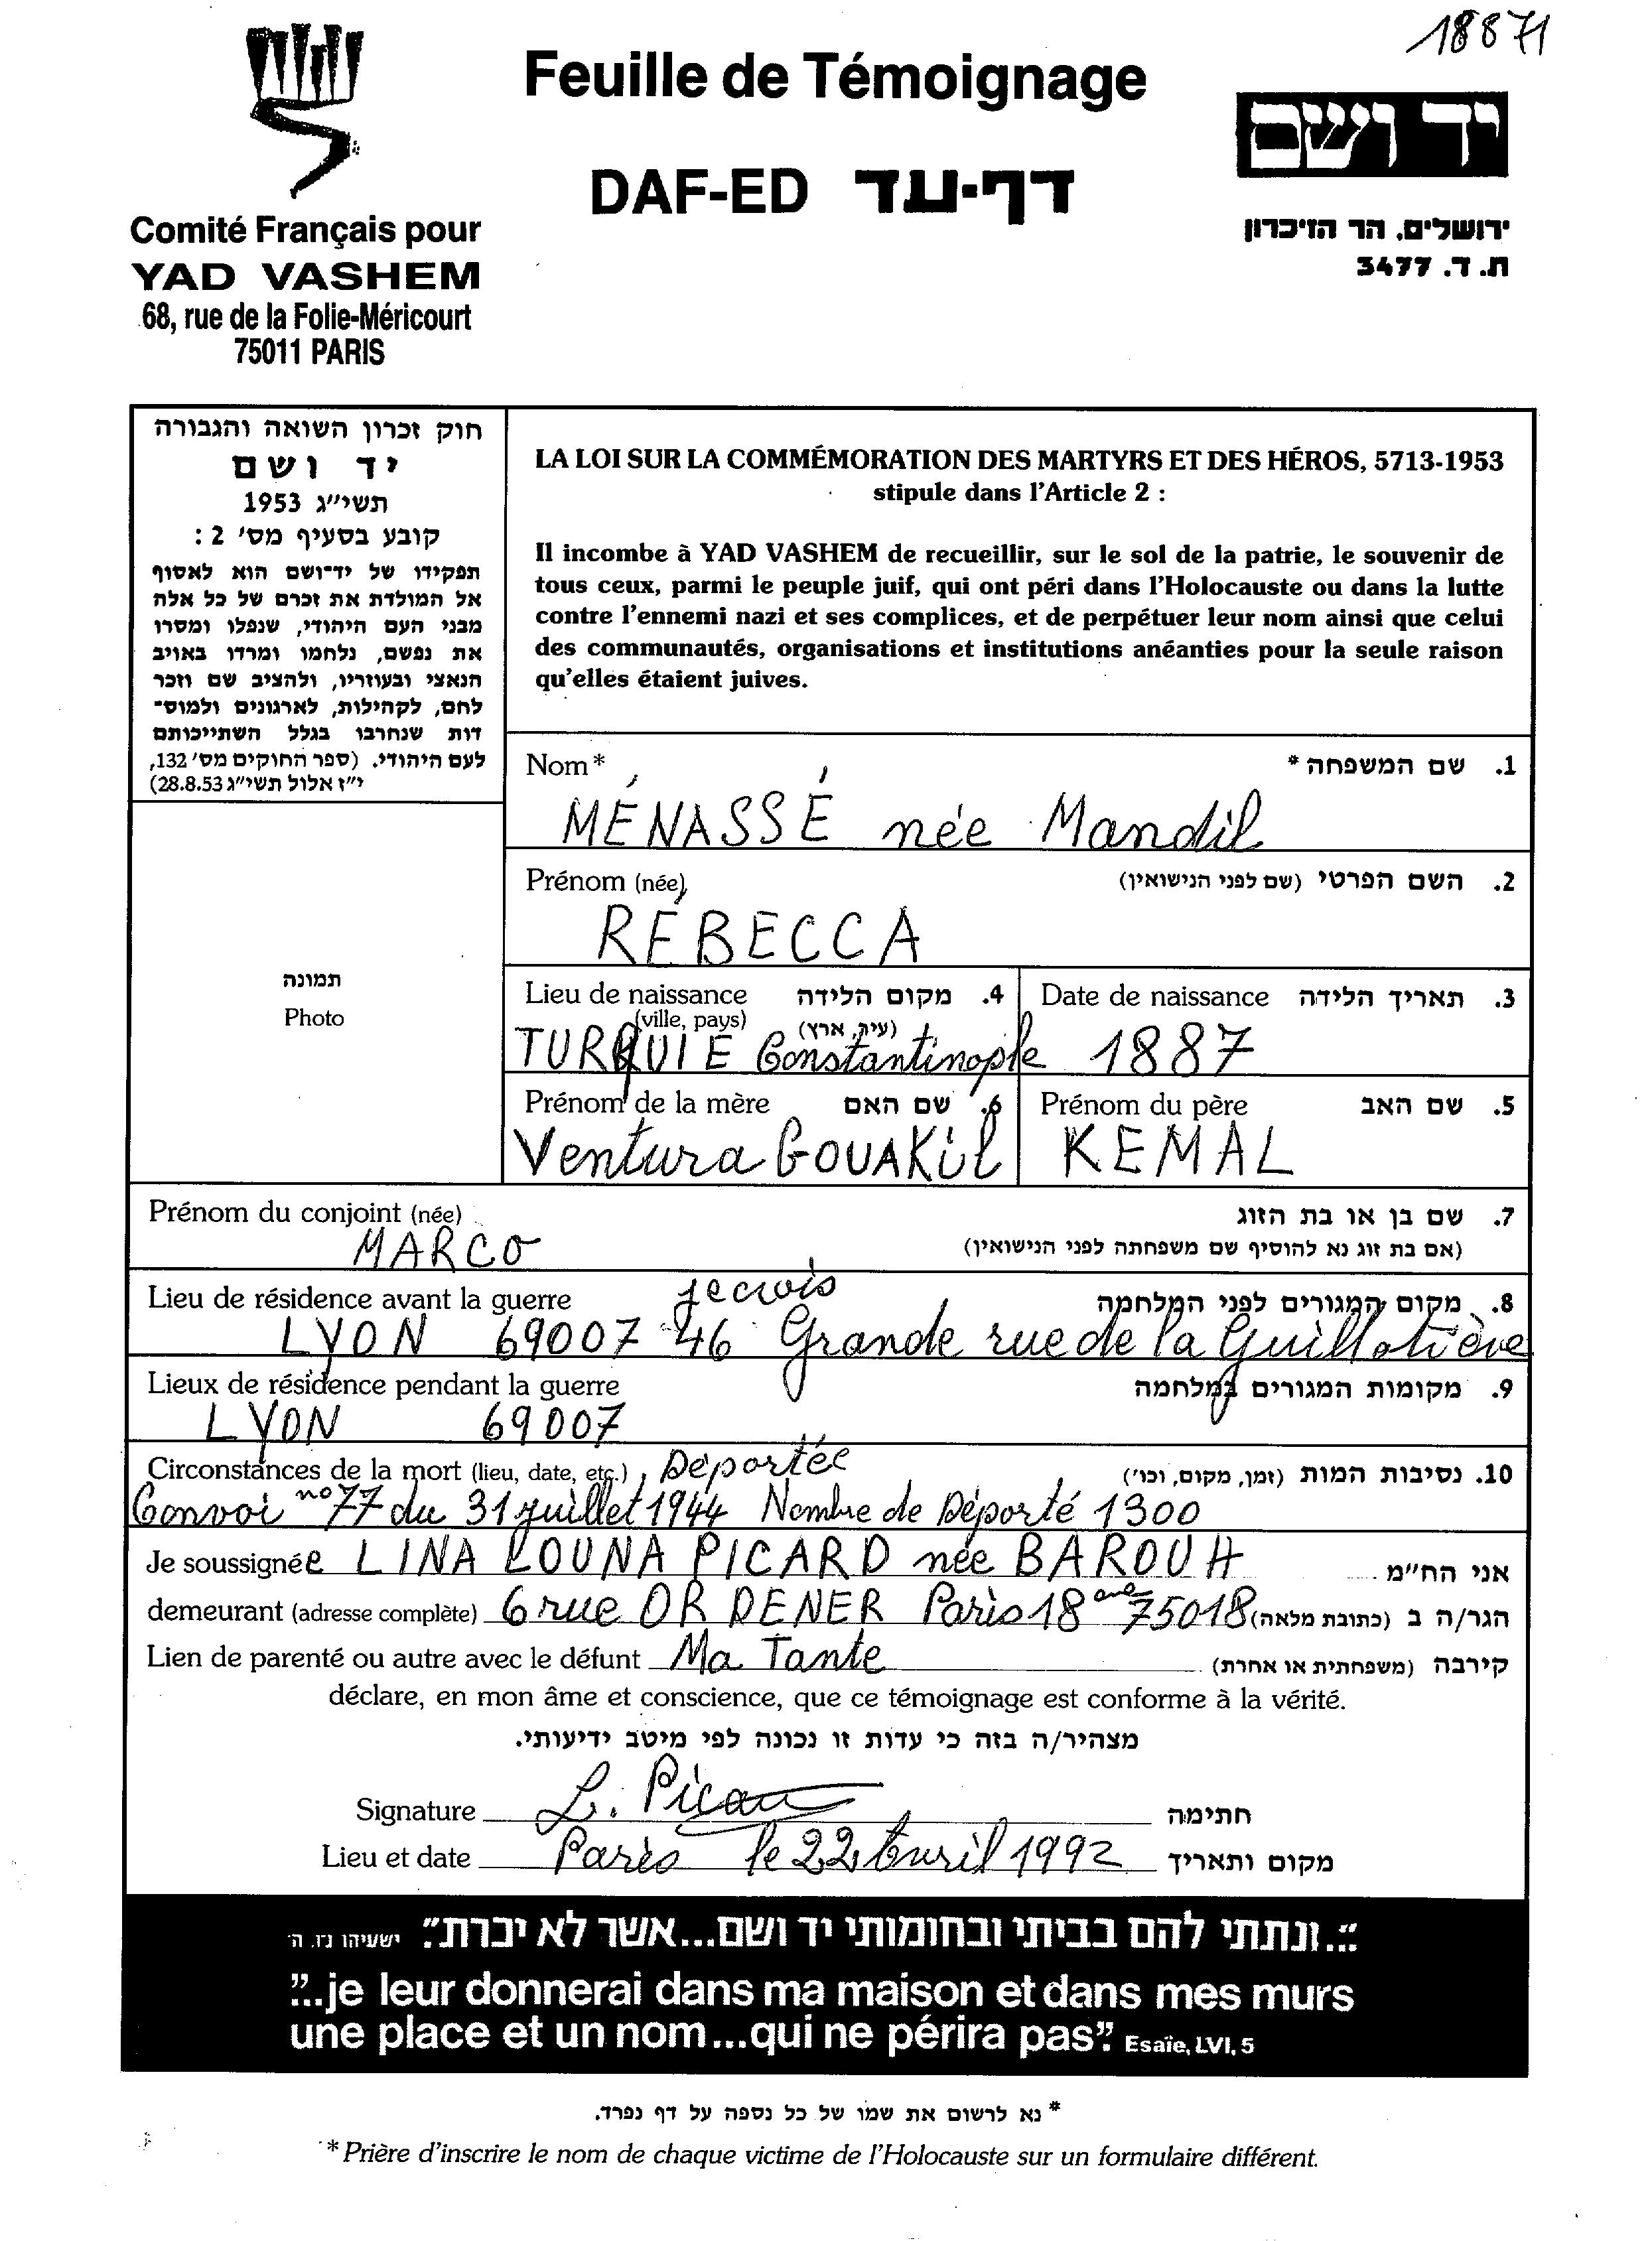 18871
Feuille de Témoignage
DAF-ED דף-עד
Comité Français pour
YAD VASHEM
68, rue de la Folie-Méricourt
75011 PARIS
יד ושם
ירושלים, הר הזיכרון
ת. ד. 3477
חוק זכרון השואה והגבורה
יד ושם
תשי״ג 1953
קובע בסעיף מס׳ 2 :
תפקידו של יד־ושם הוא לאסוף
אל המולדת את זכרם של כל אלה
מבני העם היהודי, שנפלו ומסרו
את נפשם, נלחמו ומרדו באויב
הנאצי ובעוזריו, ולהציב שם וזכר
להם, לקהילות, לארגונים ולמוס־
דות שנחרבו בגלל השתייכותם
לעם היהודי. (ספר החוקים מס׳ 132,
י״ז אלול תשי״ג 28.8.53)
LA LOI SUR LA COMMÉMORATION DES MARTYRS ET DES HÉROS, 5713-1953
stipule dans l'Article 2 :
Il incombe à YAD VASHEM de recueillir, sur le sol de la patrie, le souvenir de
tous ceux, parmi le peuple juif, qui ont péri dans l'Holocauste ou dans la lutte
contre l'ennemi nazi et ses complices, et de perpétuer leur nom ainsi que celui
des communautés, organisations et institutions anéanties pour la seule raison
qu'elles étaient juives.
Nom* 1. שם המשפחה *
MÉNASSÉ née Mandil
Prénom (née) 2. השם הפרטי (שם לפני הנישואין)
RÉBECCA
תמונה
Photo
Lieu de naissance 4. מקום הלידה
(ville, pays) (עיר, ארץ)
TURQUIE Constantinople
Date de naissance 3. תאריך הלידה
1887
Prénom de la mère 6. שם האם
Ventura GOUAKil
Prénom du père 5. שם האב
KEMAL
Prénom du conjoint (née) 7. שם בן או בת הזוג
MARCO (אם בת זוג נא להוסיף שם משפחתה לפני הנישואין)
Lieu de résidence avant la guerre je crois 8. מקום המגורים לפני המלחמה
LYON 69007 46 Grande rue de la Guillotière
Lieux de résidence pendant la guerre 9. מקומות המגורים במלחמה
LYON 69007
Circonstances de la mort (lieu, date, etc.) Déportée 10. נסיבות המות (זמן, מקום, וכו׳)
Convoi n° 77 du 31 juillet 1944 Nombre de Déporté 1300
Je soussignée LINA LOUNA PICARD née BAROUH אני הח״מ
demeurant (adresse complète) 6 rue ORDENER Paris 18 eme 75018 הגר/ה ב (כתובת מלאה)
Lien de parenté ou autre avec le défunt Ma Tante קירבה (משפחתית או אחרת)
déclare, en mon âme et conscience, que ce témoignage est conforme à la vérité.
מצהיר/ה בזה כי עדות זו נכונה לפי מיטב ידיעותי.
Signature L. Picard חתימה
Lieu et date Paris le 22 Avril 1992 מקום ותאריך
"...ונתתי להם בביתי ובחומותי יד ושם...אשר לא יכרת" ישעיהו נ״ו, ה׳
"...je leur donnerai dans ma maison et dans mes murs
une place et un nom...qui ne périra pas" Esaïe, LVI, 5
* נא לרשום את שמו של כל נספה על דף נפרד.
* Prière d'inscrire le nom de chaque victime de l'Holocauste sur un formulaire différent.